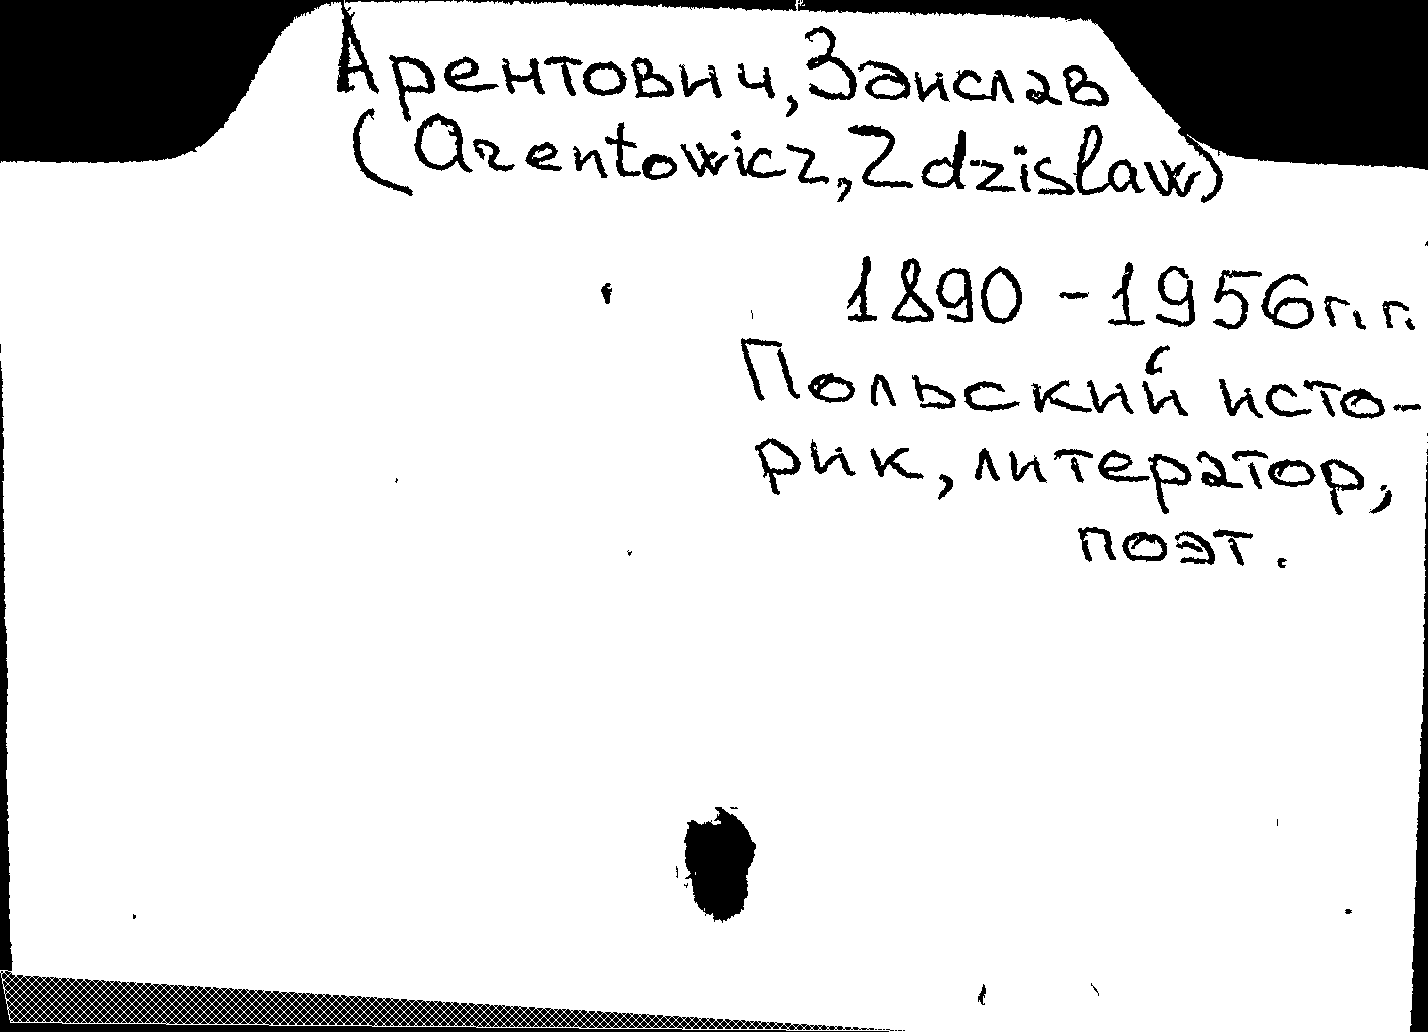 Арентович, Здислав
(Arentowicz, Zdzislaw)
1890 - 1956 г.г.
Польский исто-
рик, литератор,
поэт.